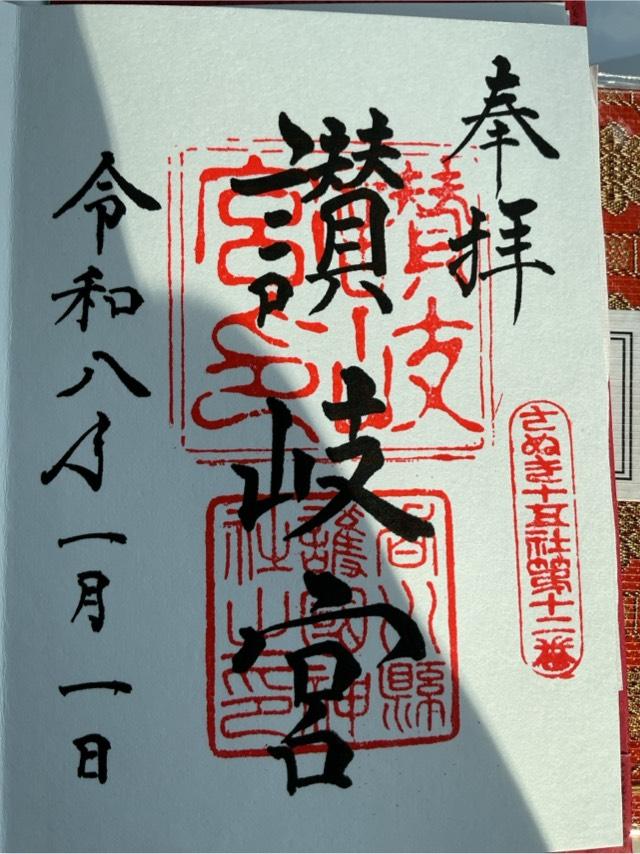 奉拝
さぬき十五社第十二番
讃岐宮
讃岐
宮印
香川縣
護國神
社之印
令和八年一月一日